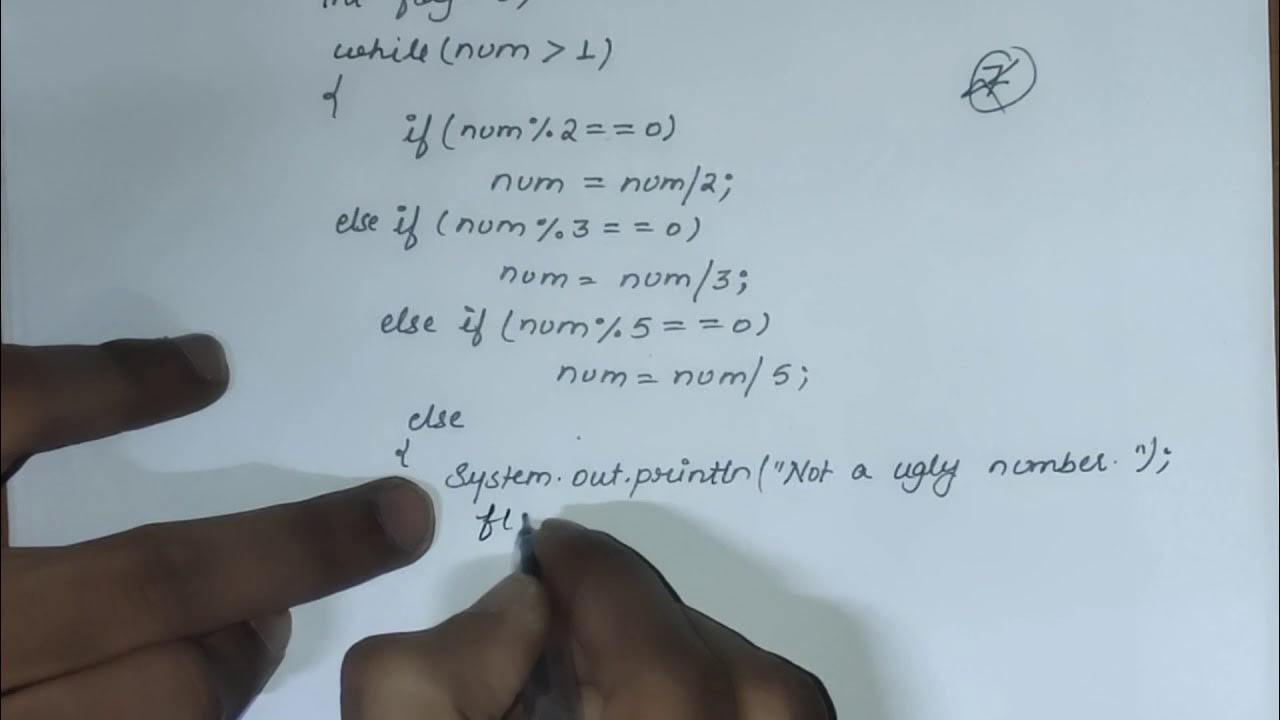 while(num > 1)
{
if (num%2 == 0)
num = num/2;
else if (num%3 == 0)
num = num/3;
else if (num%5 == 0)
num = num/5;
else
{
System.out.println("Not a ugly number.");
fl